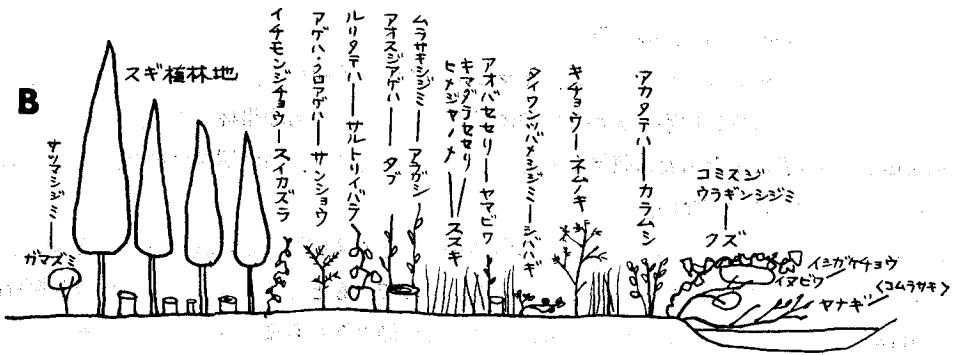 B
スギ植林地
サツマシジミ―ガマズミ
イチモンジチョウ―スイカズラ
アゲハ・クロアゲハ―サンショウ
ルリタテハ―サルトリイバラ
アオスジアゲハ―タブ
ムラサキシジミ―アラガシ
ヒメジャノメ
キマダラセセリ
ススキ
アオバセセリ―ヤマビワ
タイワンツバメシジミ―シバハギ
キチョウ―ネムノキ
アカタテハ―カラムシ
コミスジ
ウラギンシジミ
クズ
イシガケチョウ
イヌビワ
ヤナギ〈コムラサキ〉